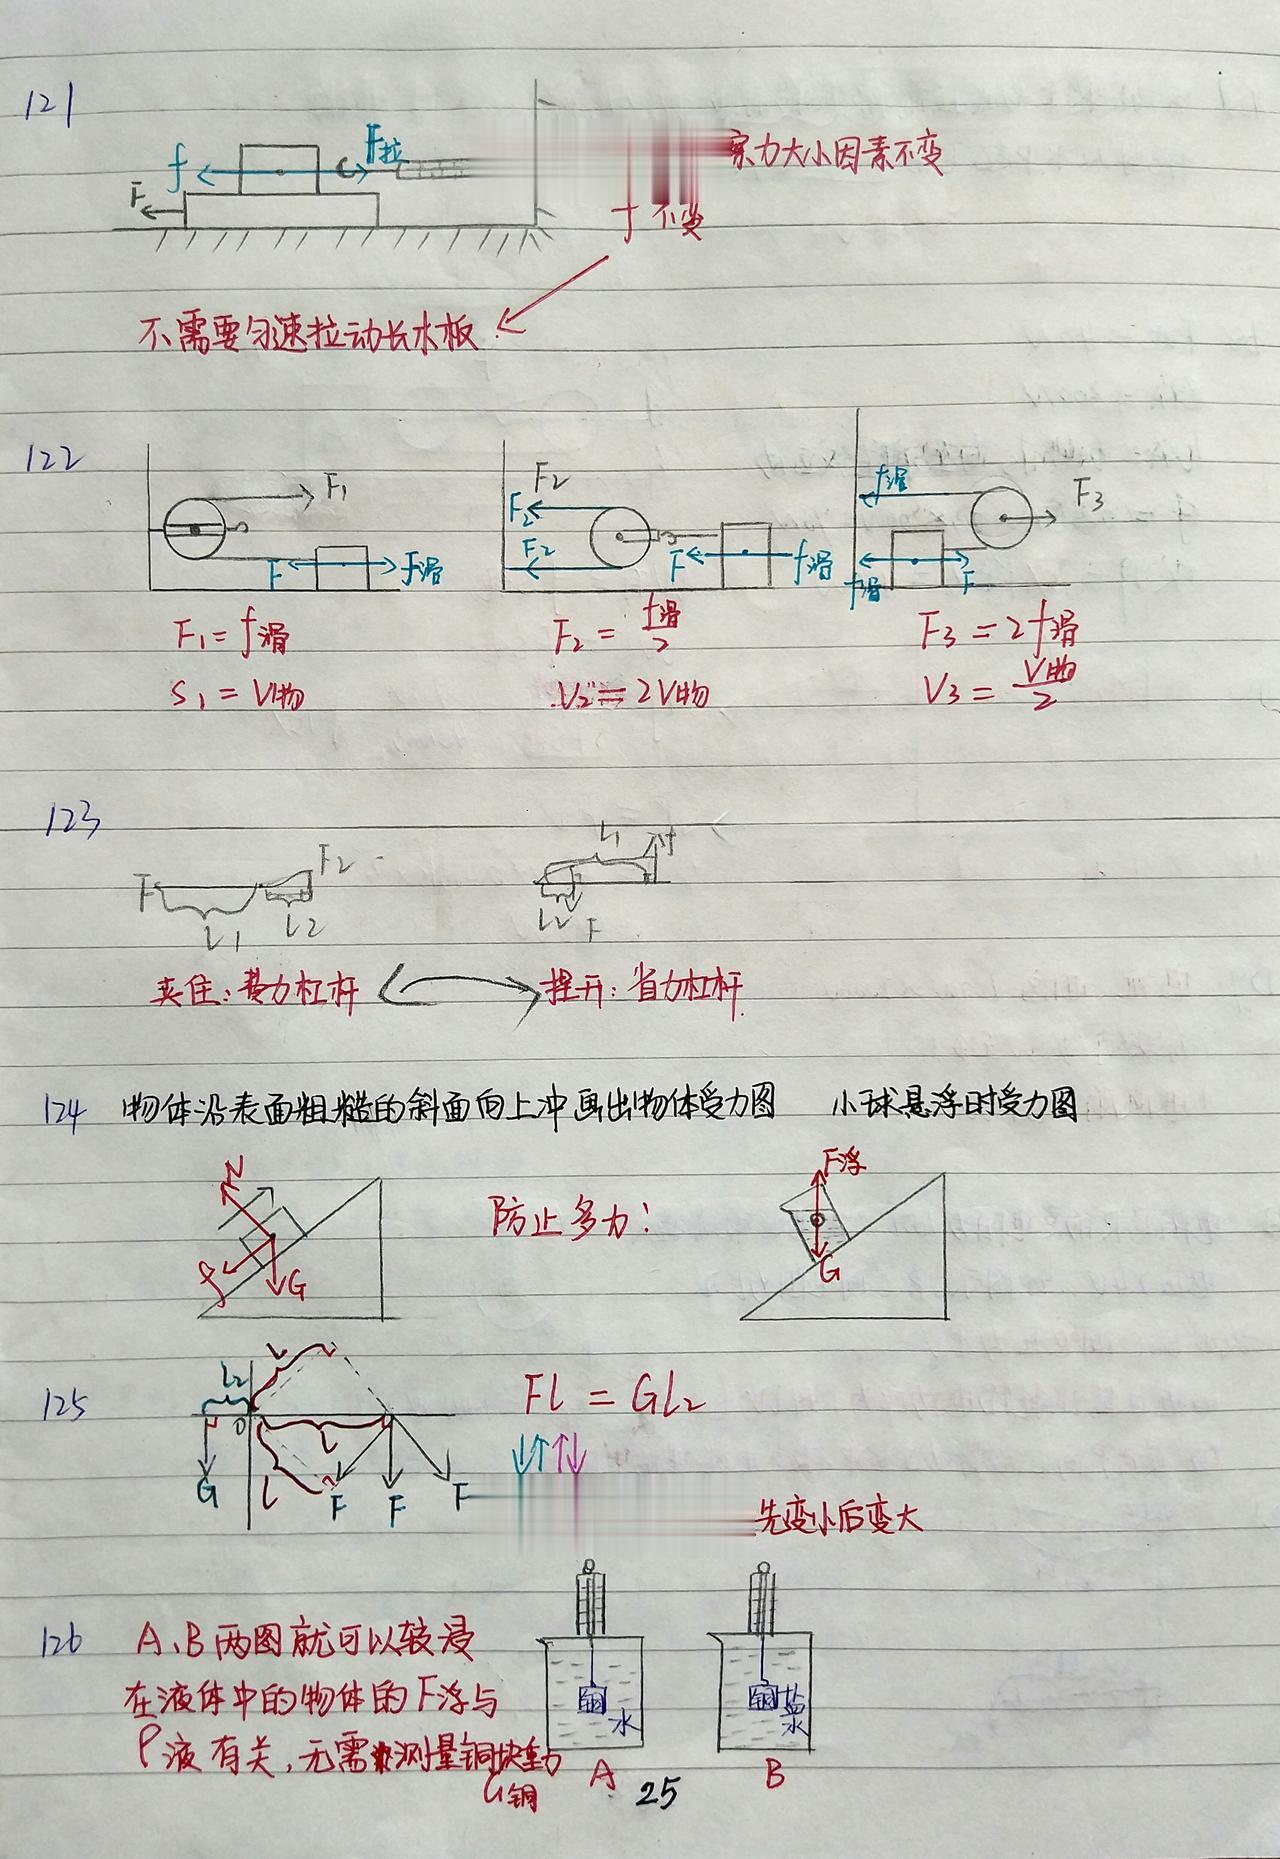 121
f F拉 F
力大小因素不变
f 不变
不需要匀速拉动长木板
122
F1 F2 f滑 F3
F2
F2
F f滑 F f滑 f滑 F
F1=f滑 F2=f滑/2 F3=2f滑
S1=V物 V2=2V物 V3=V物/2
123
F2 L1 f
F L1 L2 L2 F
夹住:费力杠杆 提开:省力杠杆
124 物体沿表面粗糙的斜面向上冲画出物体受力图 小球悬浮时受力图
N F浮
防止多力:
f G G
125 L2 L Fl=GL2
O L
G l F F F
先变小后变大
126 A、B两图就可以较浸
在液体中的物体的F浮与
ρ液有关,无需测量铜块重力
G铜
铜 水 铜 盐水
A B
25